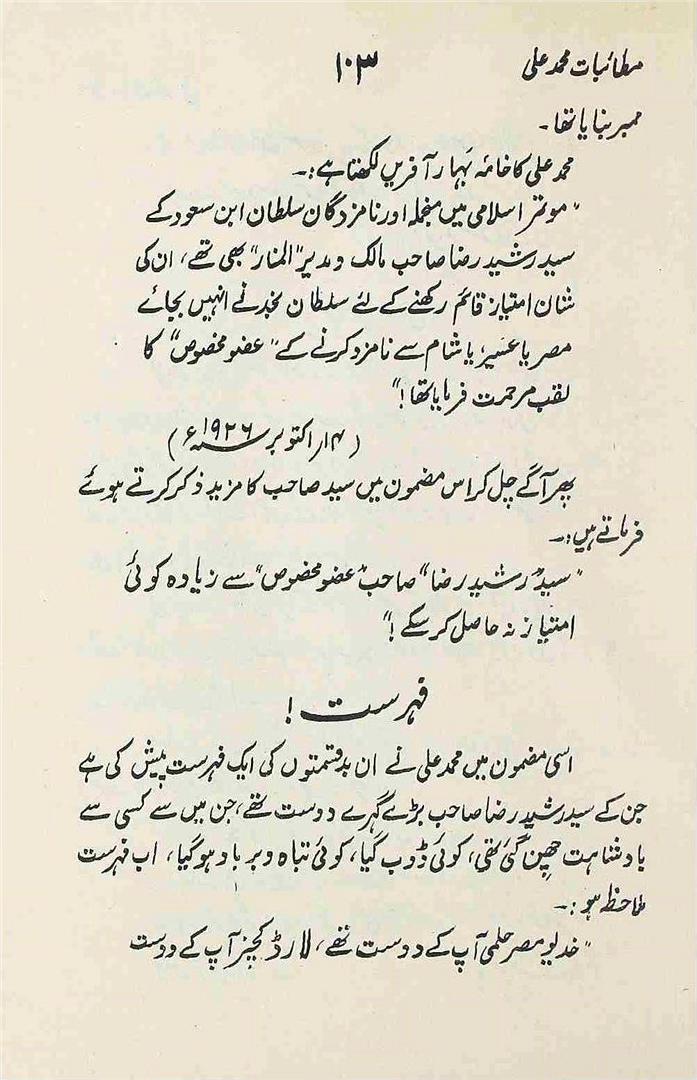 مطائبات محمد علی ۱۰۳
ممبر بنایا تھا۔
محمد علی کا خامۂ بہار آفریں لکھتا ہے:۔
"موتمر اسلامی میں منجملہ اور نامزدگان سلطان ابن سعود کے
سید رشید رضا صاحب مالک و مدیر "المنار" بھی تھے، ان کی
شان امتیاز قائم رکھنے کے لئے سلطان نجد نے انہیں بجائے
مصر یا عسیر یا شام سے نامزد کرنے کے "عضو مخصوص" کا
لقب مرحمت فرمایا تھا!"
(۱۴؍ اکتوبر ۱۹۲۶ء)
پھر آگے چل کر اس مضمون میں سید صاحب کا مزید ذکر کرتے ہوئے
فرماتے ہیں:۔
"سید رشید رضا" صاحب "عضو مخصوص" سے زیادہ کوئی
امتیاز نہ حاصل کر سکے!"
فہرست!
اسی مضمون میں محمد علی نے ان بدقسمتوں کی ایک فہرست پیش کی ہے
جن کے سید رشید رضا صاحب بڑے گہرے دوست تھے، جن میں سے کسی سے
بادشاہت چھن گئی تھی، کوئی ڈوب گیا، کوئی تباہ و برباد ہو گیا، اب فہرست
ملاحظہ ہو:۔
"خدیو مصر حلمی آپ کے دوست تھے، لارڈ کچنر آپ کے دوست